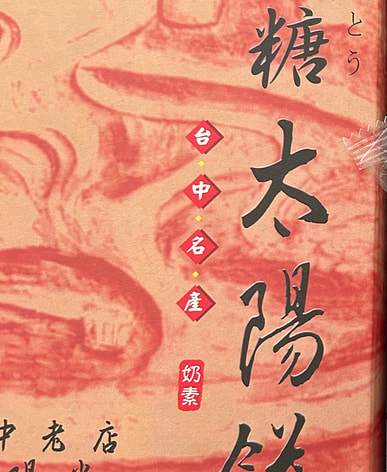 とう
糖太陽餅
台中名產
奶素
中老店